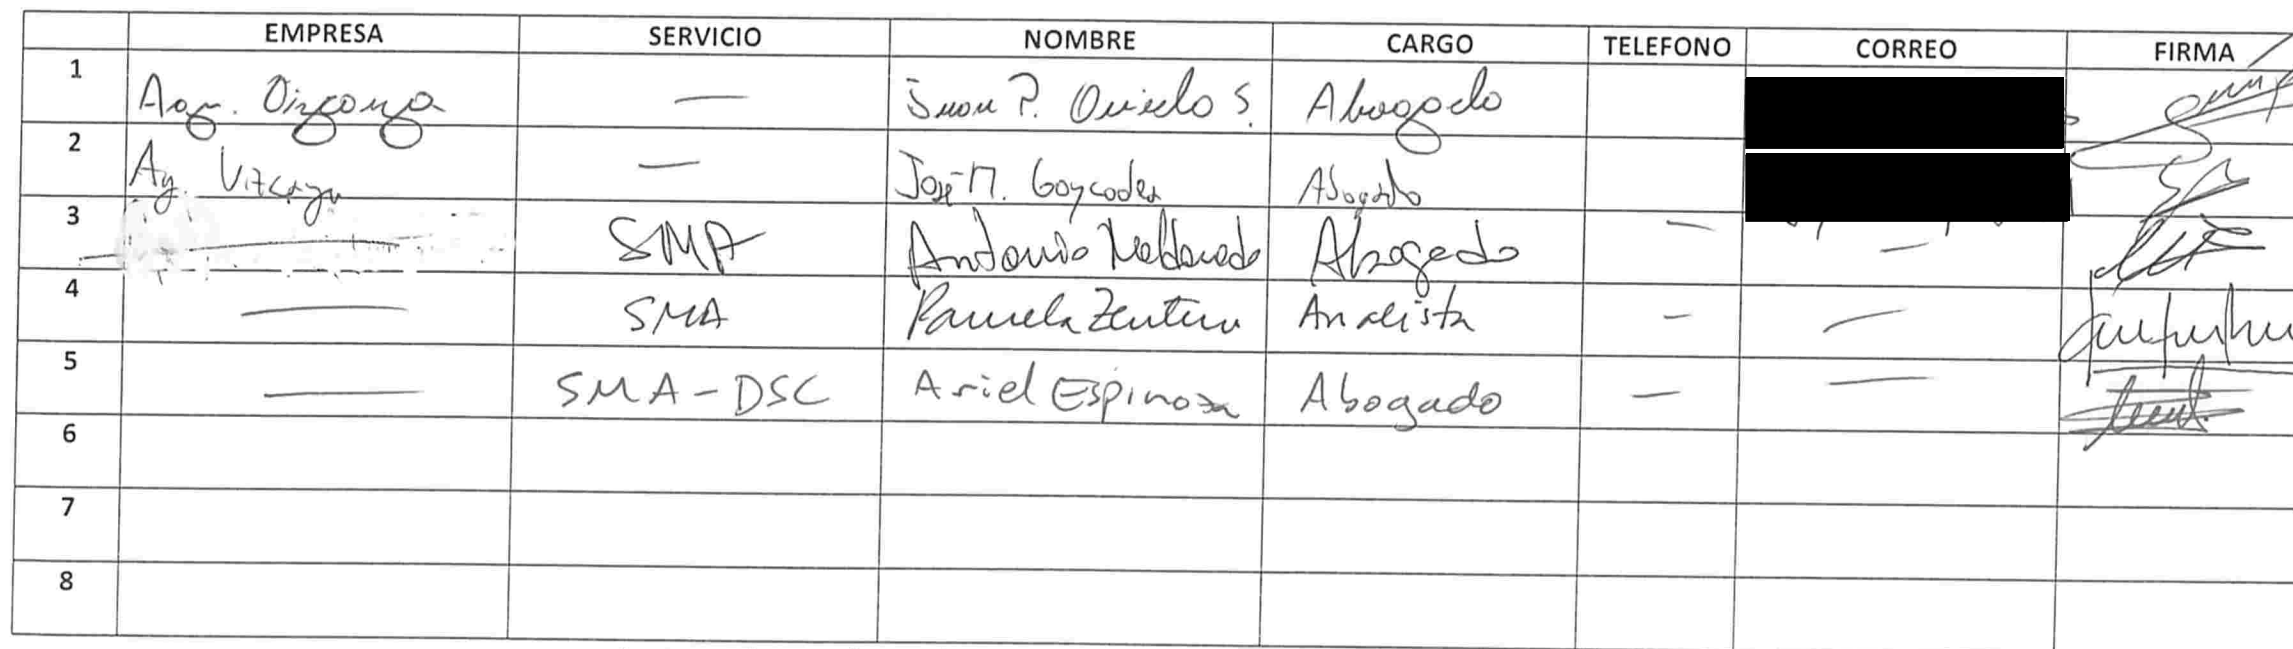 EMPRESA SERVICIO NOMBRE CARGO TELEFONO CORREO FIRMA
1 Agr. — Juan P. Oviedo S. Abogado
2 Ag. Vizcaya — José M. Goycoolea Abogado
3 — SMA Antonio Maldonado Abogado — —
4 — SMA Pamela Zenteno Analista — —
5 — SMA-DSC Ariel Espinoza Abogado — —
6
7
8